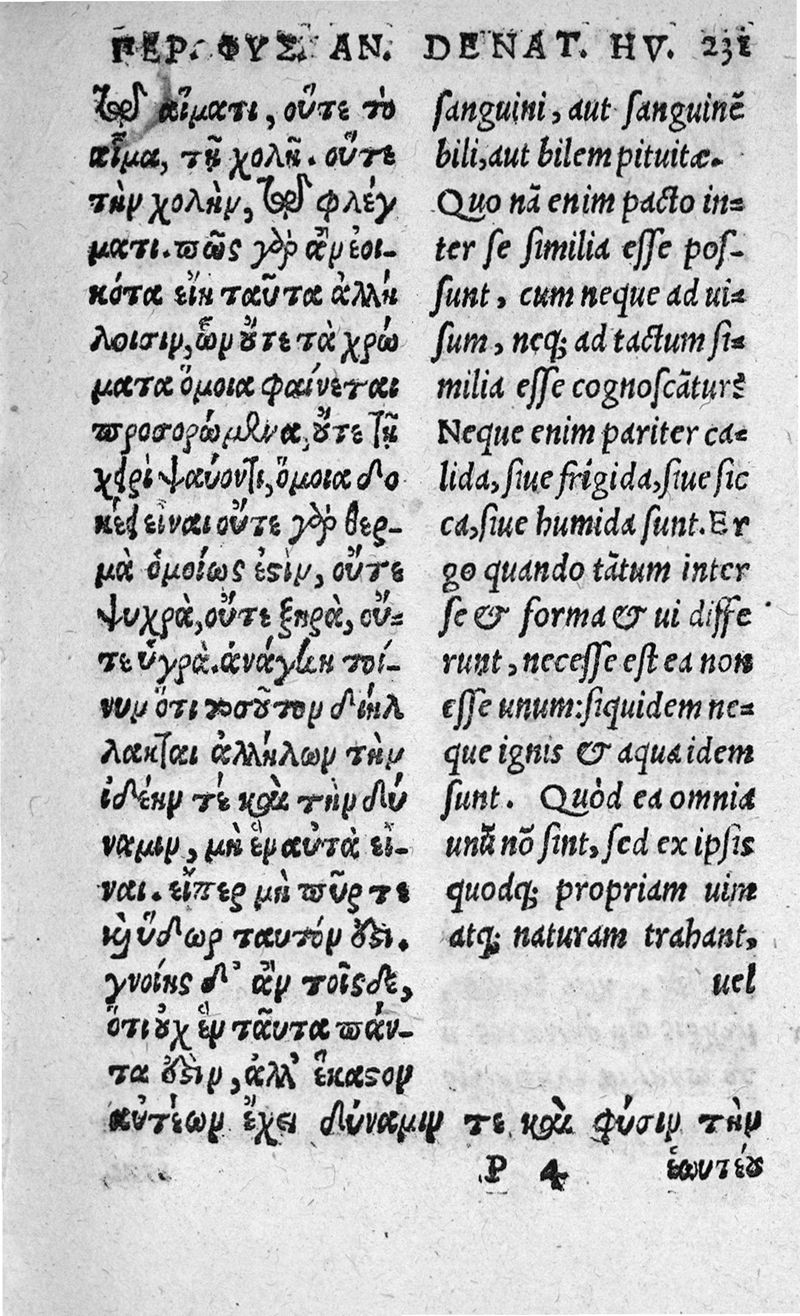 ΠΕΡ. ΦΥΣ. ΑΝ. DE NAT. HV. 231
τῷ αἵματι, οὔτε τὸ
αἷμα, τῇ χολῇ. οὔτε
τὴν χολὴν, τῷ φλέγ
ματι. πῶς γὰρ ἂν ἐοι-
κότα εἴη ταῦτα ἀλλή
λοισιν, ὧν οὔτε τὰ χρώ
ματα ὅμοια φαίνεται
προσορώμενα, οὔτε τῇ
χειρὶ ψαύοντι, ὅμοια δο
κέει εἶναι οὔτε γὰρ θερ-
μὰ ὁμοίως ἐστὶν, οὔτε
ψυχρὰ, οὔτε ξηρὰ, οὔ-
τε ὑγρὰ. ἀνάγκη τοί-
νυν ὅτι τοσοῦτον διήλ
λακται ἀλλήλων τὴν
ἰδέην τέ καὶ τὴν δύ
ναμιν, μὴ ἓν αὐτὰ εἶ-
ναι. εἴπερ μὴ πῦρ τε
καὶ ὕδωρ ταυτόν ἐστι.
γνοίης δ' ἂν τοῖσδε,
ὅτι οὐχ ἓν ταῦτα πάν-
τα ἐστὶν, ἀλλ' ἕκαστον
αὐτέων ἔχει δύναμιν τε καὶ φύσιν τὴν
sanguini, aut sanguinē
bili, aut bilem pituitæ.
Quo nā enim pacto in-
ter se similia esse pos-
sunt, cum neque ad ui-
sum, neq; ad tactum si-
milia esse cognoscātur?
Neque enim pariter ca-
lida, siue frigida, siue sic
ca, siue humida sunt. Er
go quando tātum inter
se & forma & ui diffe
runt, necesse est ea non
esse unum: siquidem ne-
que ignis & aqua idem
sunt. Quòd ea omnia
unū nō sint, sed ex ipsis
quodq; propriam uim
atq; naturam trahant,
uel
P 4 ἑωυτέου